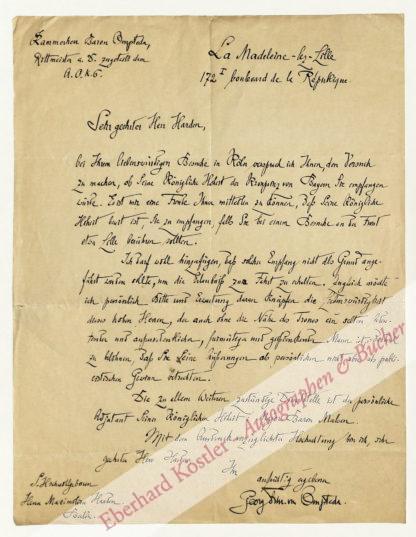 Kammerherr Baron Ompteda,
Rittmeister a. D. zugeteilt dem
A.O.K.6.
La Madeleine-lez-Lille
172 I boulevard de la République
Sehr geehrter Herr Harden,
bei Ihrem liebenswürdigen Besuche in Köln versprach ich Ihnen, den Versuch
zu machen, ob Seine Königliche Hoheit der Kronprinz von Bayern Sie empfangen
würde. Es ist mir eine Freude Ihnen mitteilen zu können, daß Seine Königliche
Hoheit bereit ist, Sie zu empfangen, falls Sie bei einem Besuche an der Front
etwa Lille berühren sollten.
Ich darf wohl hinzufügen, daß solcher Empfang nicht als Grund ange-
führt werden sollte, um die Erlaubnis zur Fahrt zu erhalten. Zugleich möchte
ich persönlich Bitte und Erwartung daran knüpfen die
dieses hohen Herren, der auch ohne die Nähe des Trones ein selten
und Mann ist
zu daß Sie Seine als persönlichen als
Gewinn betrachten.
Die zu allem Weiteren zuständige Stelle ist der persönliche
Adjutant Seiner Königlichen Hoheit, Major Baron
Mit dem Ausdruck vorzüglichster Hochachtung bin ich, sehr
geehrter Herr Harden,
Ihr
aufrichtig ergebener
Georg Frhr. von Ompteda.
S. Hochwohlgeboren
Herrn Maximilian Harden
Berlin.
Eberhard Köstler - Autographen & Bücher